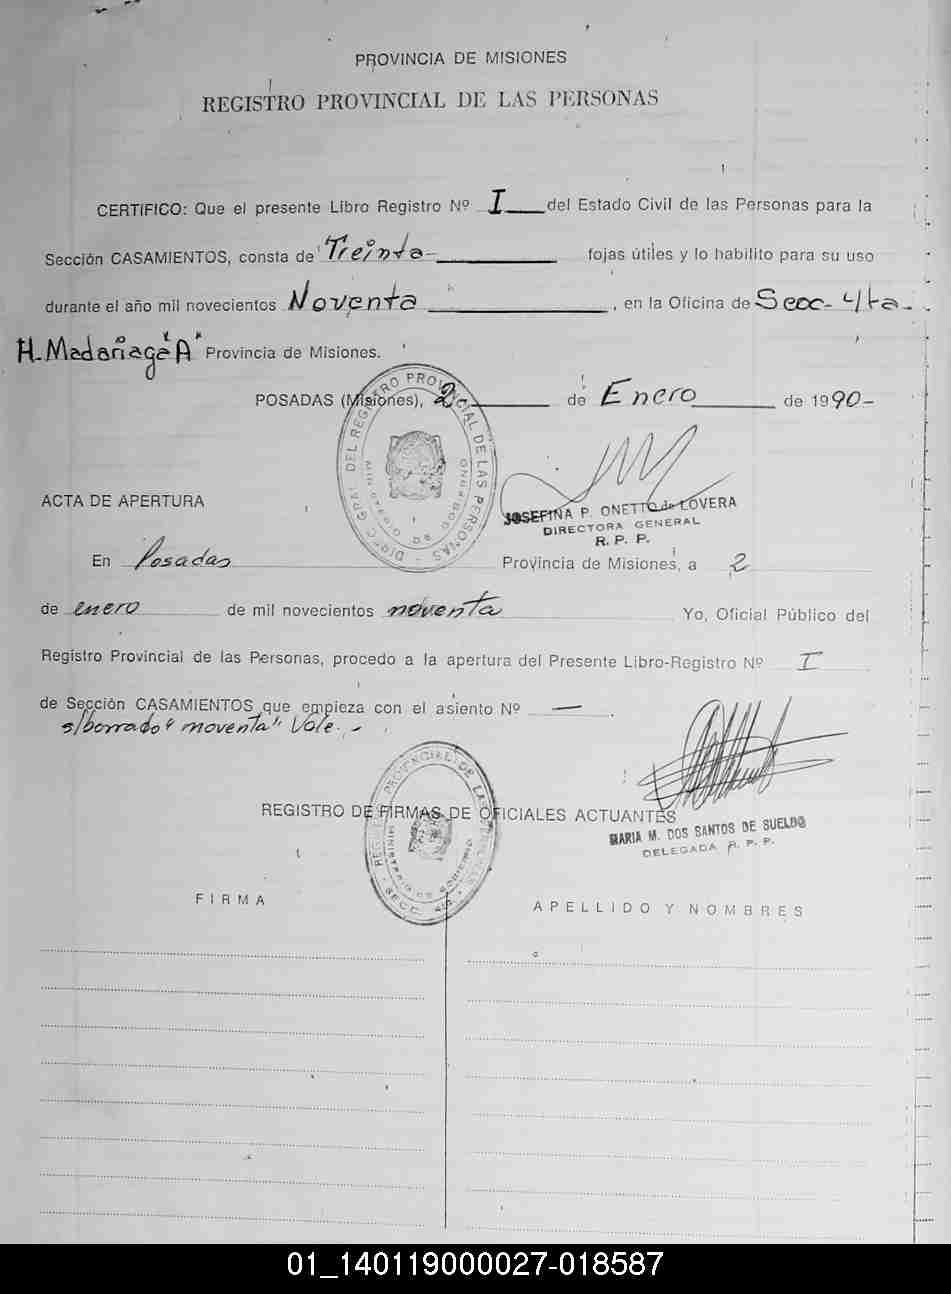 PROVINCIA DE MISIONES
REGISTRO PROVINCIAL DE LAS PERSONAS
CERTIFICO: Que el presente Libro Registro Nº I del Estado Civil de las Personas para la
Sección CASAMIENTOS, consta de Treinta- fojas útiles y lo habilito para su uso
durante el año mil novecientos Noventa, en la Oficina de Secc- 4ta-
H. Madariaga "A" Provincia de Misiones.
POSADAS (Misiones), 2 de Enero de 1990-
DIREC. GRAL. DEL REGISTRO PROVINCIAL DE LAS PERSONAS
MINISTERIO DE GOBIERNO
JOSEFINA P. ONETTO de LOVERA
DIRECTORA GENERAL
R. P. P.
ACTA DE APERTURA
En Posadas Provincia de Misiones, a 2
de enero de mil novecientos noventa Yo, Oficial Público del
Registro Provincial de las Personas, procedo a la apertura del Presente Libro-Registro Nº I
de Sección CASAMIENTOS que empieza con el asiento Nº — .
s/borrado "noventa" Vale.-
REGISTRO PROVINCIAL DE LAS PERSONAS
MINISTERIO DE GOBIERNO
SECC. 4ta
REGISTRO DE FIRMAS DE OFICIALES ACTUANTES
MARIA M. DOS SANTOS DE SUELDO
DELEGADA R. P. P.
FIRMA
APELLIDO Y NOMBRES
01_140119000027-018587